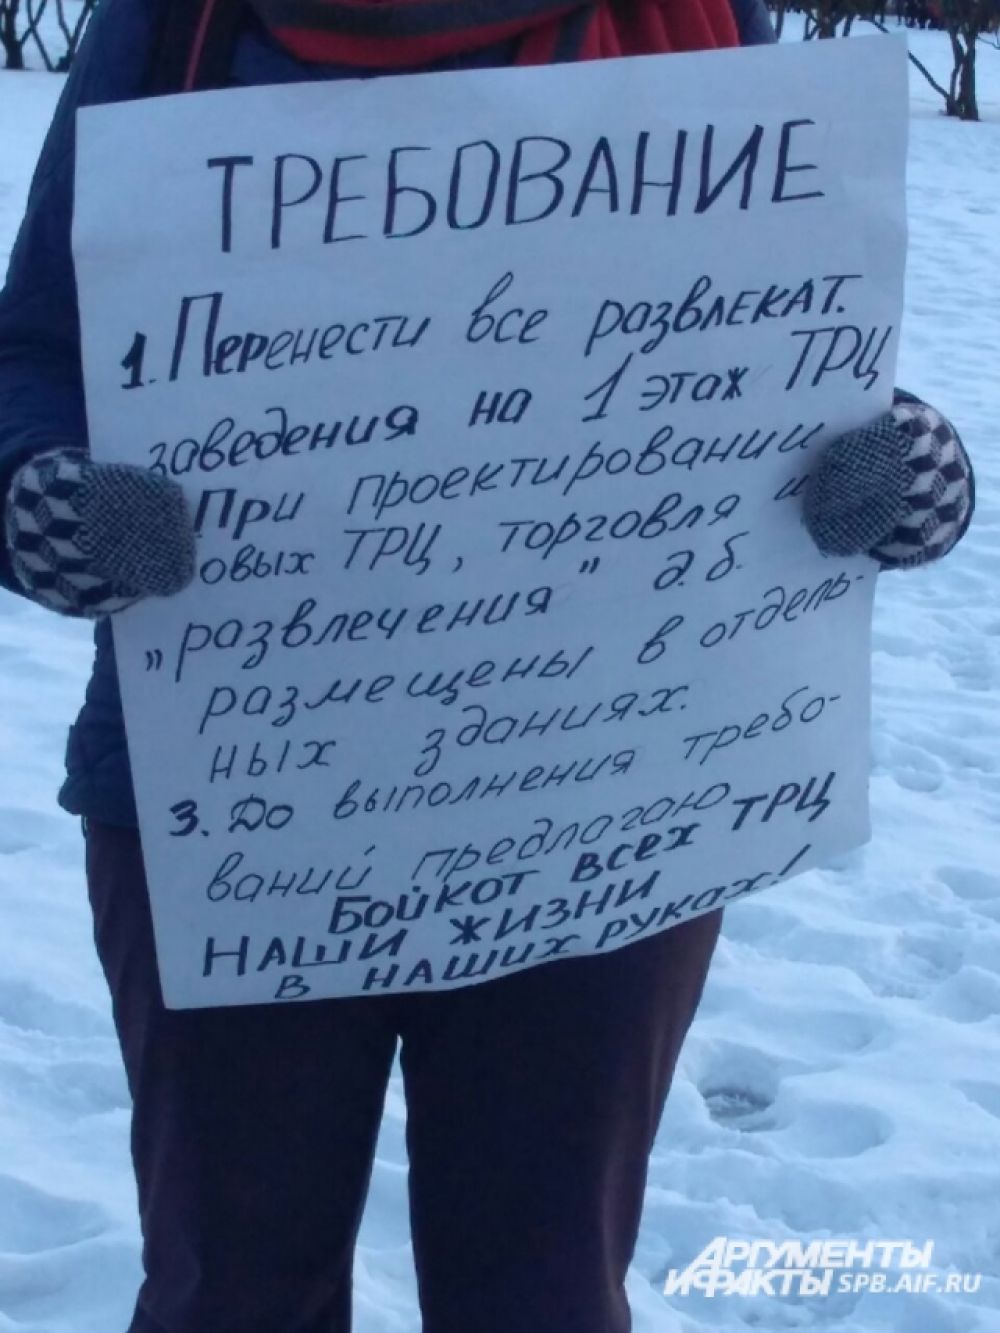 ТРЕБОВАНИЕ
1. Перенести все развлекат.
заведения на 1 этаж ТРЦ
При проектировании
овых ТРЦ, торговля и
„развлечения" д.б.
размещены в отдель-
ных зданиях.
3. До выполнения требо-
ваний предлагаю
Бойкот всех ТРЦ
Наши жизни
в наших руках!
АРГУМЕНТЫ
И ФАКТЫ SPB.AIF.RU